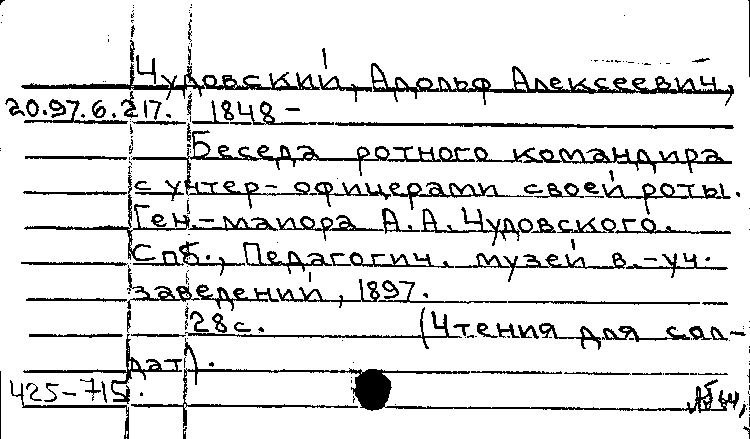 Чудовский, Адольф Алексеевич,
20.97.6.217. 1848 –
Беседа ротного командира
с унтер-офицерами своей роты.
Ген.-майора А.А. Чудовского.
Спб., Педагогич. музей в.-уч.
заведений, 1897.
28 с. (Чтения для сол-
дат).
425-715.